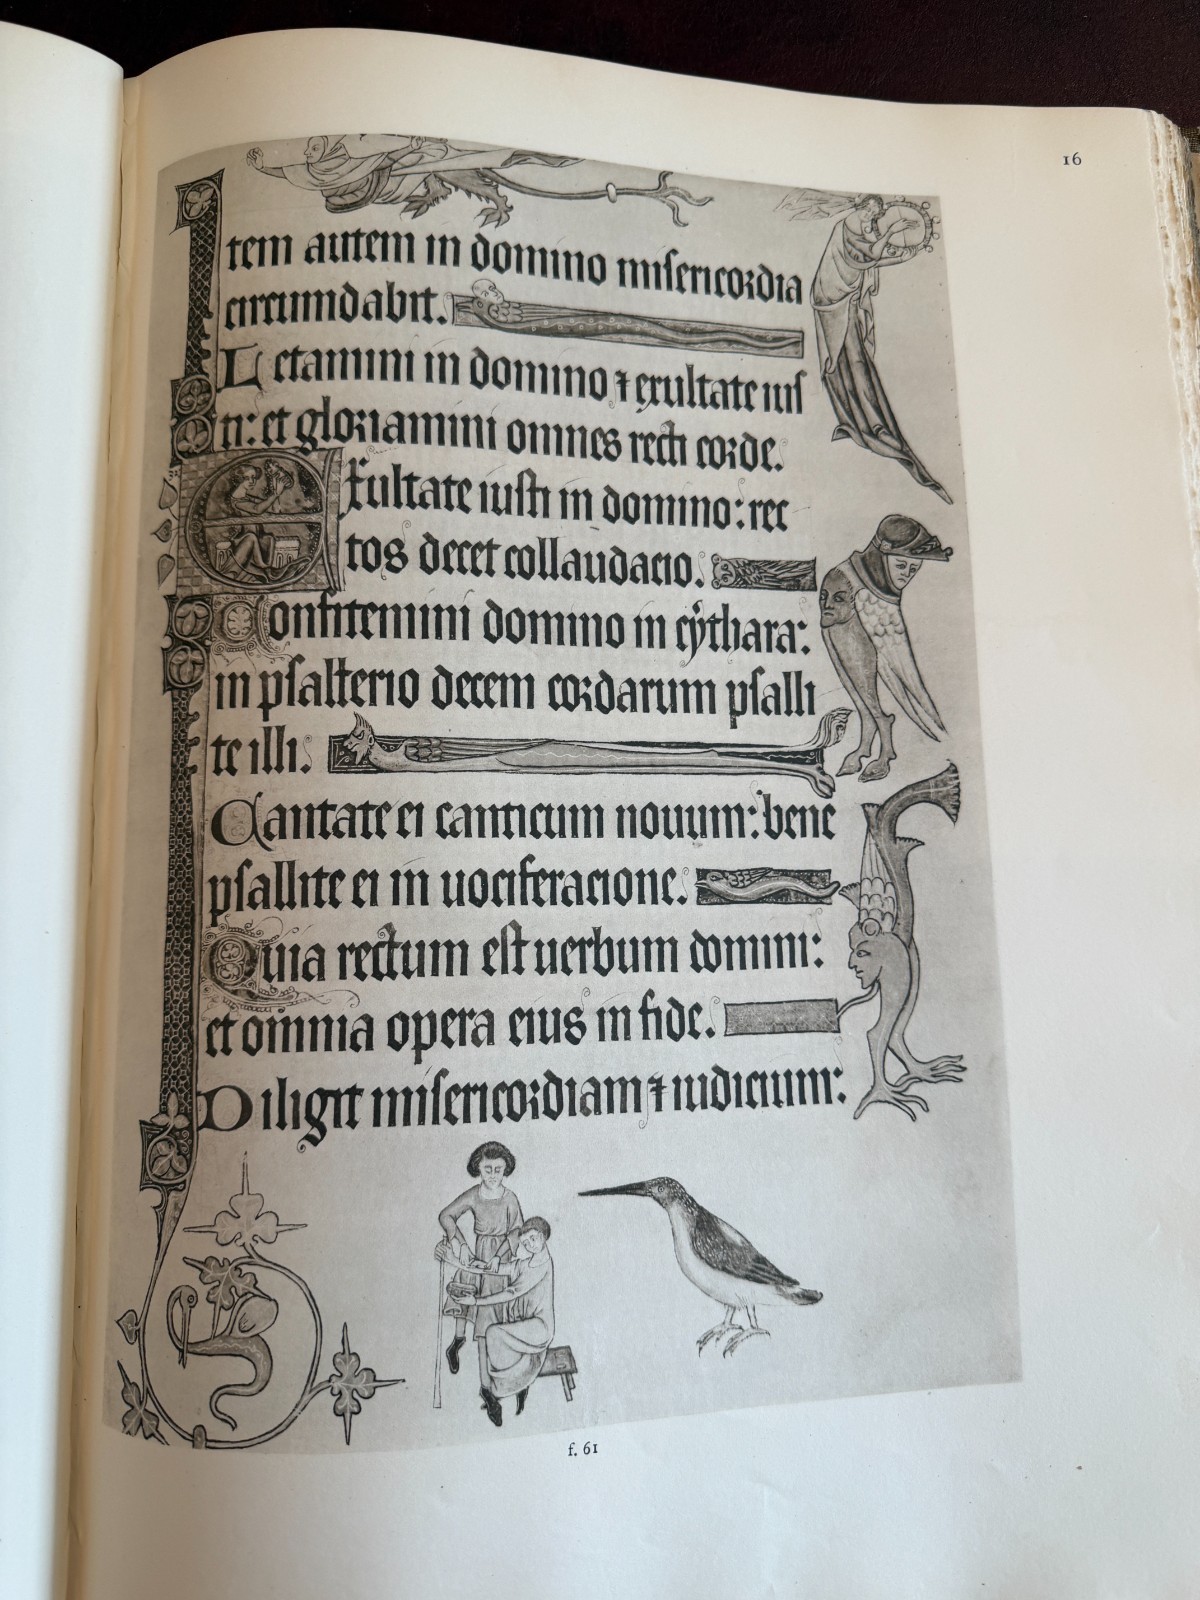 16
tem autem in domino misericordia
circumdabit.
Letamini in domino ⁊ exultate ius
ti: et gloriamini omnes recti corde.
Exultate iusti in domino: rec
tos decet collaudacio.
Confitemini domino in cythara:
in psalterio decem cordarum psalli
te illi.
Cantate ei canticum nouum: bene
psallite ei in uociferacione.
Quia rectum est uerbum domini:
et omnia opera eius in fide.
Diligit misericordiam ⁊ iudicium:
f. 61